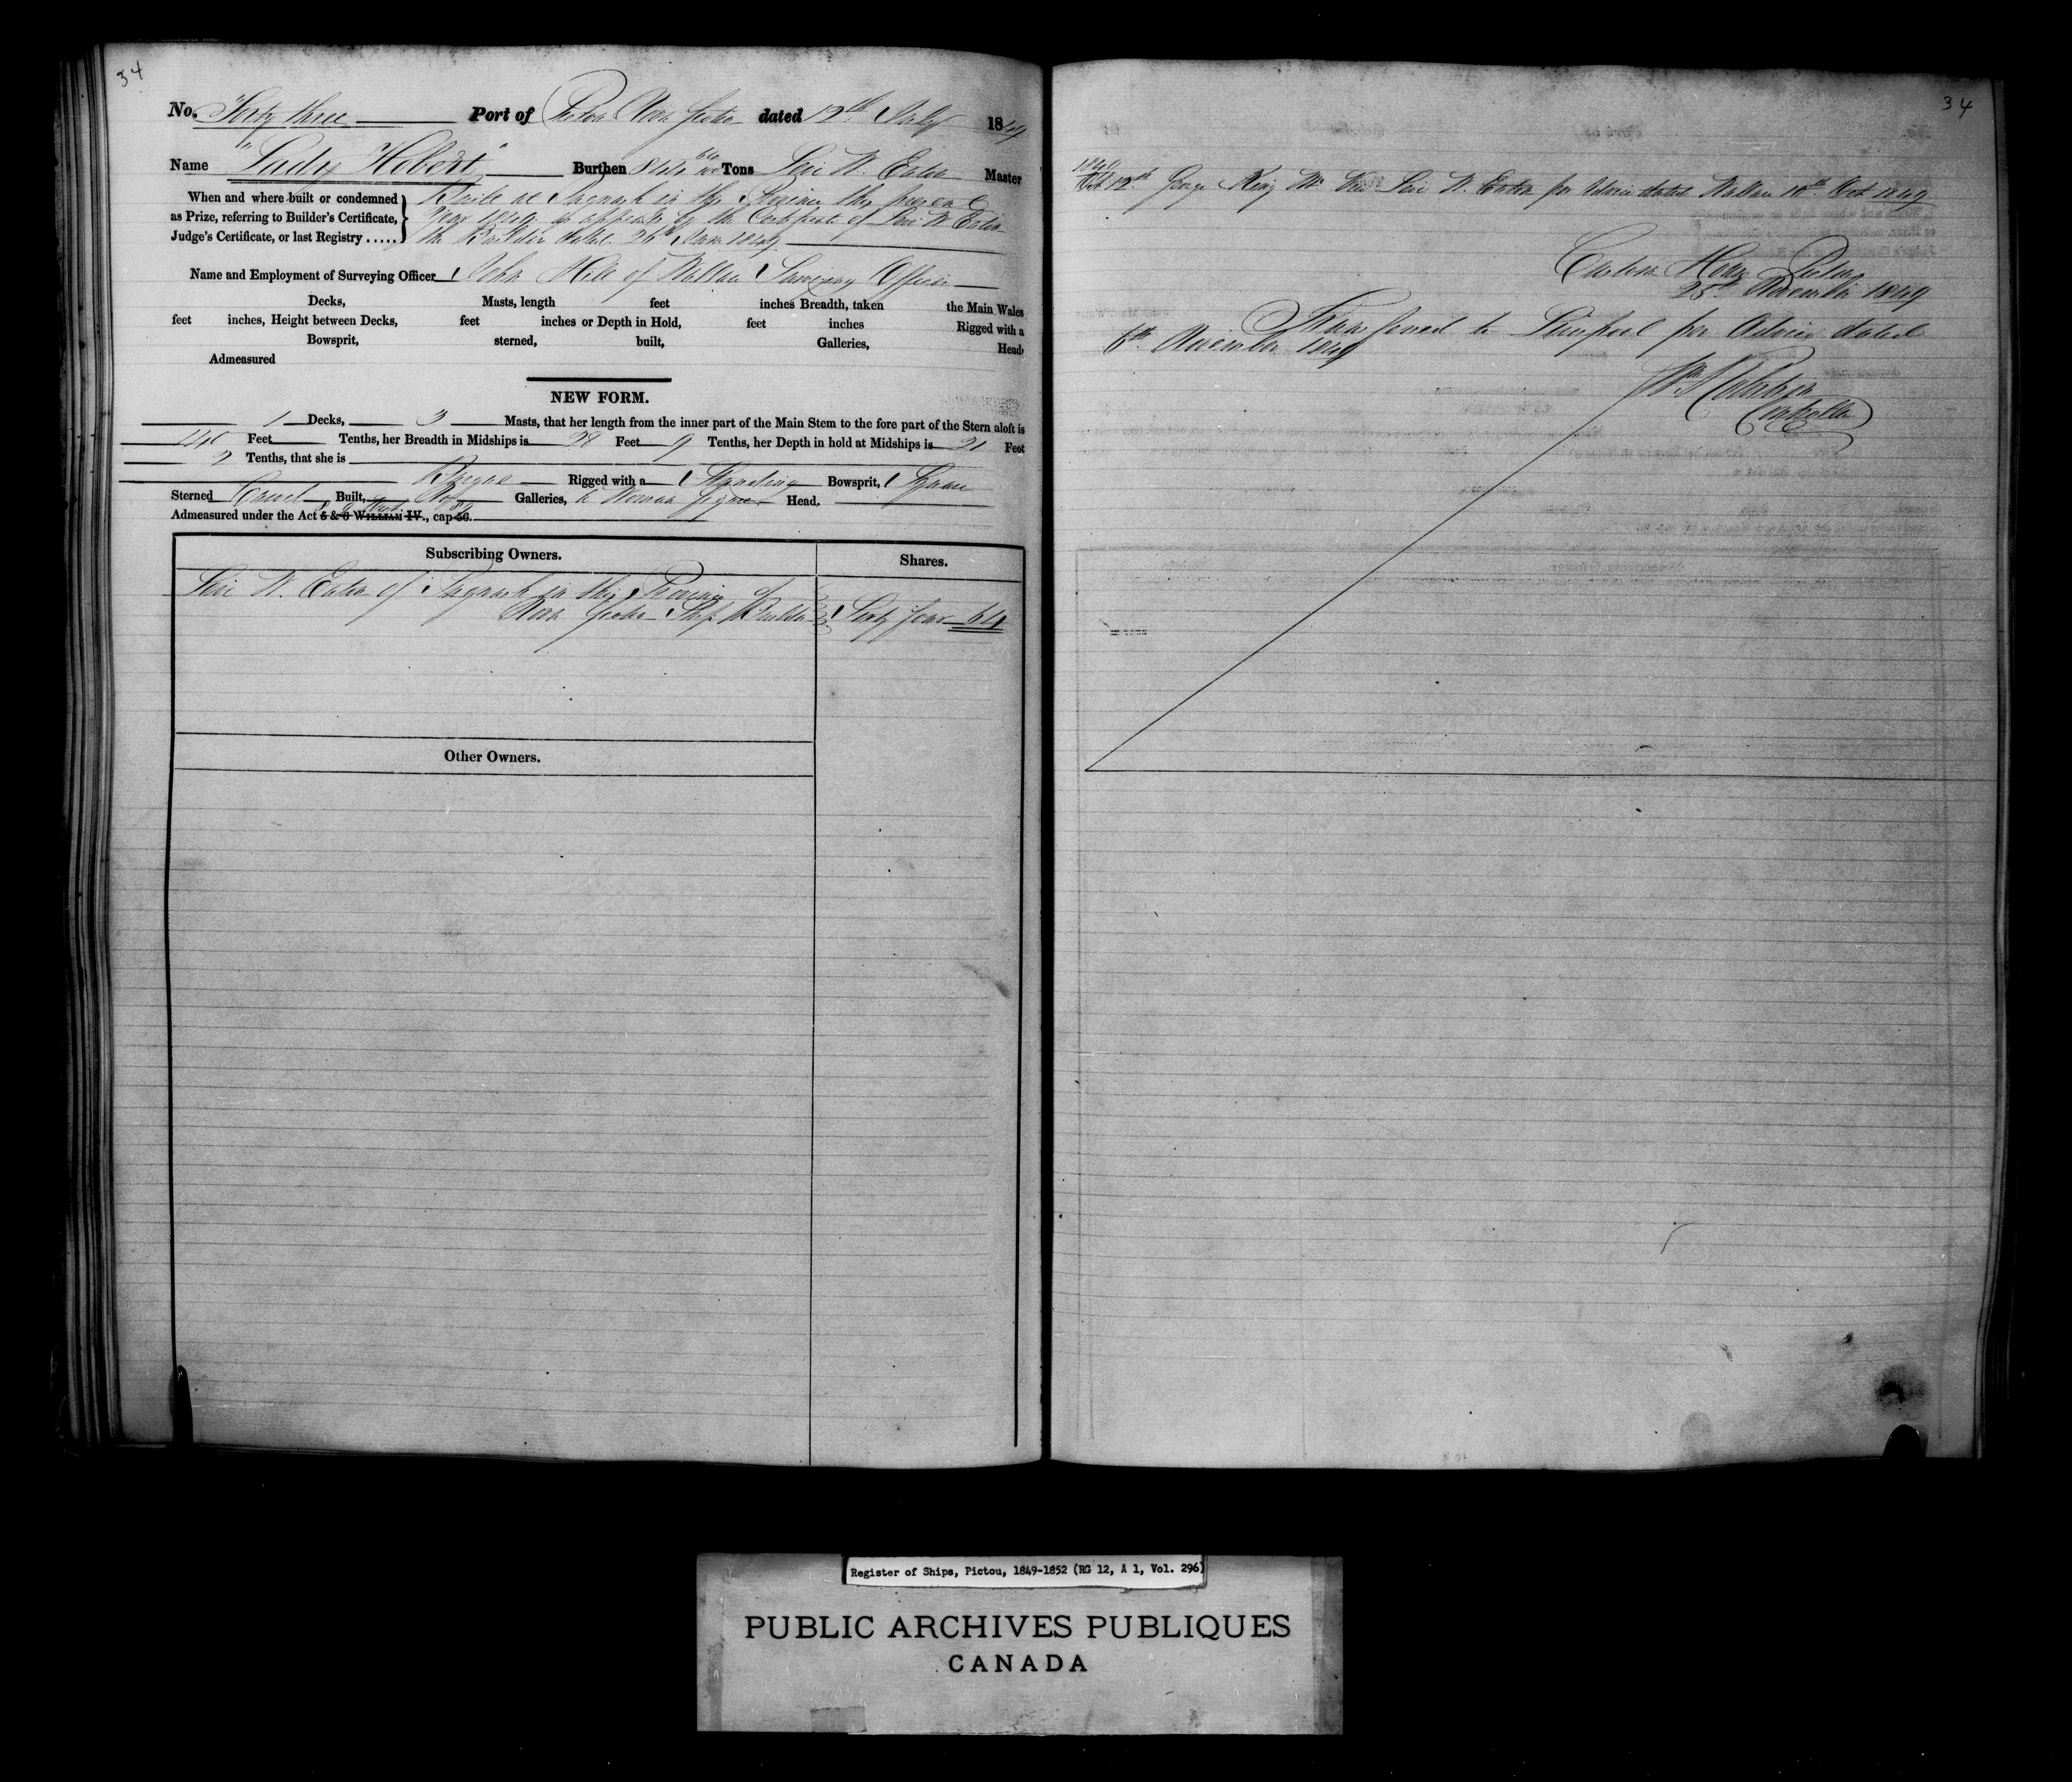 34
No. Forty three Port of Pictou Nova Scotia dated 12th July 1849
Name "Lady Hobart" Burthen Tons Levi W. Eaton Master
When and where built or condemned as Prize, referring to Builder's Certificate, Judge's Certificate, or last Registry .....
Built at Pugwash in this Province this present
year 1849 as appears by the Certificate of Levi W Eaton
the Builder dated 26th June 1849
Name and Employment of Surveying Officer John Hill of Wallace Surveying Officer
Decks, Masts, length feet inches Breadth, taken the Main Wales
feet inches, Height between Decks, feet inches or Depth in Hold, feet inches Rigged with a
Bowsprit, sterned, built, Galleries, Head
Admeasured
NEW FORM.
1 Decks, 3 Masts, that her length from the inner part of the Main Stem to the fore part of the Stern aloft is
Feet Tenths, her Breadth in Midships is 28 Feet 9 Tenths, her Depth in hold at Midships is 21 Feet
2 Tenths, that she is
Barque Rigged with a Standing Bowsprit, Square
Sterned Carvel Built, No Galleries, & Woman figure Head.
Admeasured under the Act 5 & 6 WILLIAM IV., cap 56.
Subscribing Owners. Shares.
Levi W. Eaton of Pugwash in this Province of
Nova Scotia Ship Builder Sixty four 64
Other Owners.
34
1849
Oct 12th George King Mr Vice Levi W. Eaton per Advice dated Wallace 10th Oct 1849
Custom House Pictou
25th November 1849
Transferred to Liverpool per Advice dated
6th November 1849
Controller
Register of Ships, Pictou, 1849-1852 (RG 12, A 1, Vol. 296)
PUBLIC ARCHIVES PUBLIQUES
CANADA